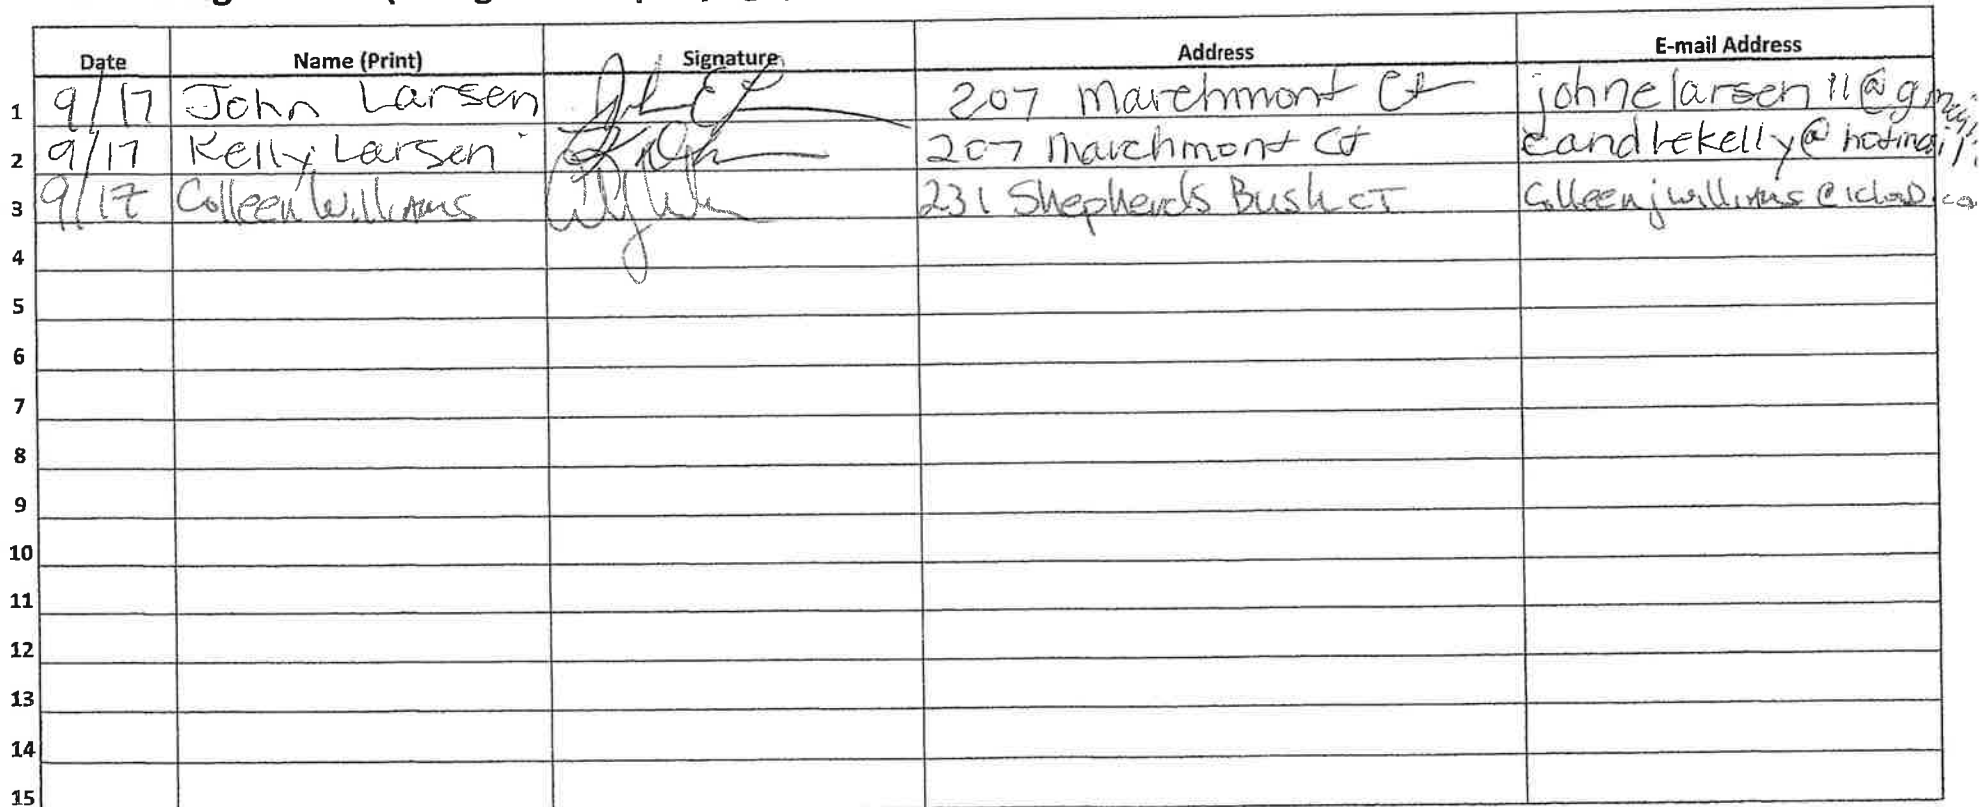 Date Name (Print) Signature Address E-mail Address
1 9/17 John Larsen 207 Marchmont Ct johnelarsen11@gmail
2 9/17 Kelly Larsen 207 Marchmont Ct @hotmail
3 9/17 Colleen Williams 231 Shepherds Bush CT Colleenjwilliams@icloud.co
4
5
6
7
8
9
10
11
12
13
14
15